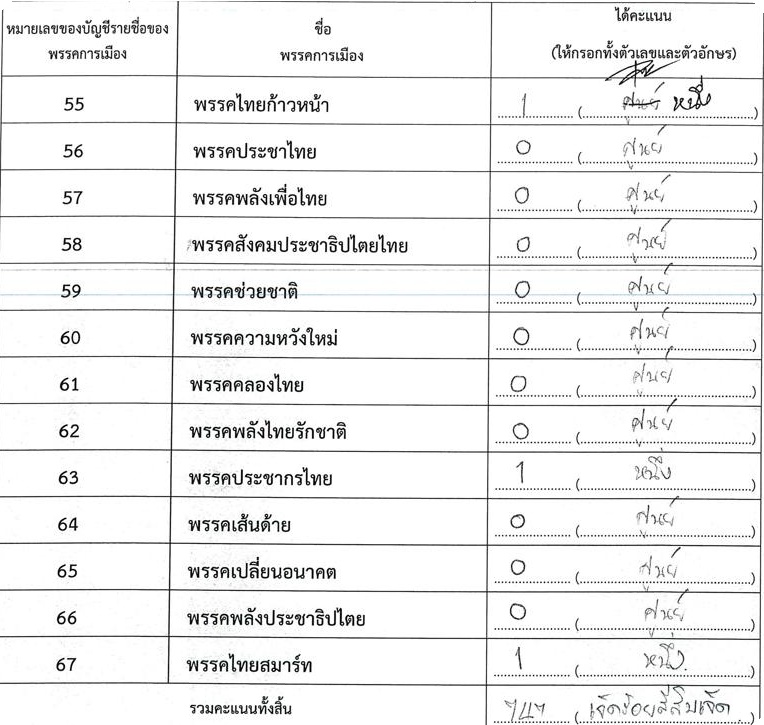 หมายเลขของบัญชีรายชื่อของ
พรรคการเมือง
ชื่อ
พรรคการเมือง
ได้คะแนน
(ให้กรอกทั้งตัวเลขและตัวอักษร)
55 พรรคไทยก้าวหน้า 1 (ศูนย์ หนึ่ง)
56 พรรคประชาไทย 0 (ศูนย์)
57 พรรคพลังเพื่อไทย 0 (ศูนย์)
58 พรรคสังคมประชาธิปไตยไทย 0 (ศูนย์)
59 พรรคช่วยชาติ 0 (ศูนย์)
60 พรรคความหวังใหม่ 0 (ศูนย์)
61 พรรคคลองไทย 0 (ศูนย์)
62 พรรคพลังไทยรักชาติ 0 (ศูนย์)
63 พรรคประชากรไทย 1 (หนึ่ง)
64 พรรคเส้นด้าย 0 (ศูนย์)
65 พรรคเปลี่ยนอนาคต 0 (ศูนย์)
66 พรรคพลังประชาธิปไตย 0 (ศูนย์)
67 พรรคไทยสมาร์ท 1 (หนึ่ง)
รวมคะแนนทั้งสิ้น 747 (เจ็ดร้อยสี่สิบเจ็ด)